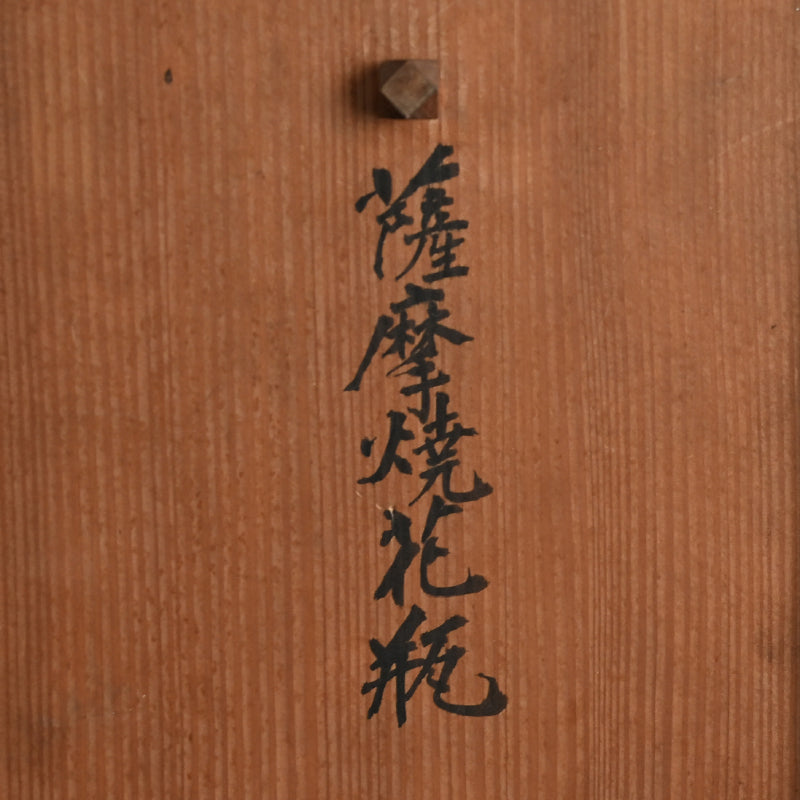 薩摩焼花瓶